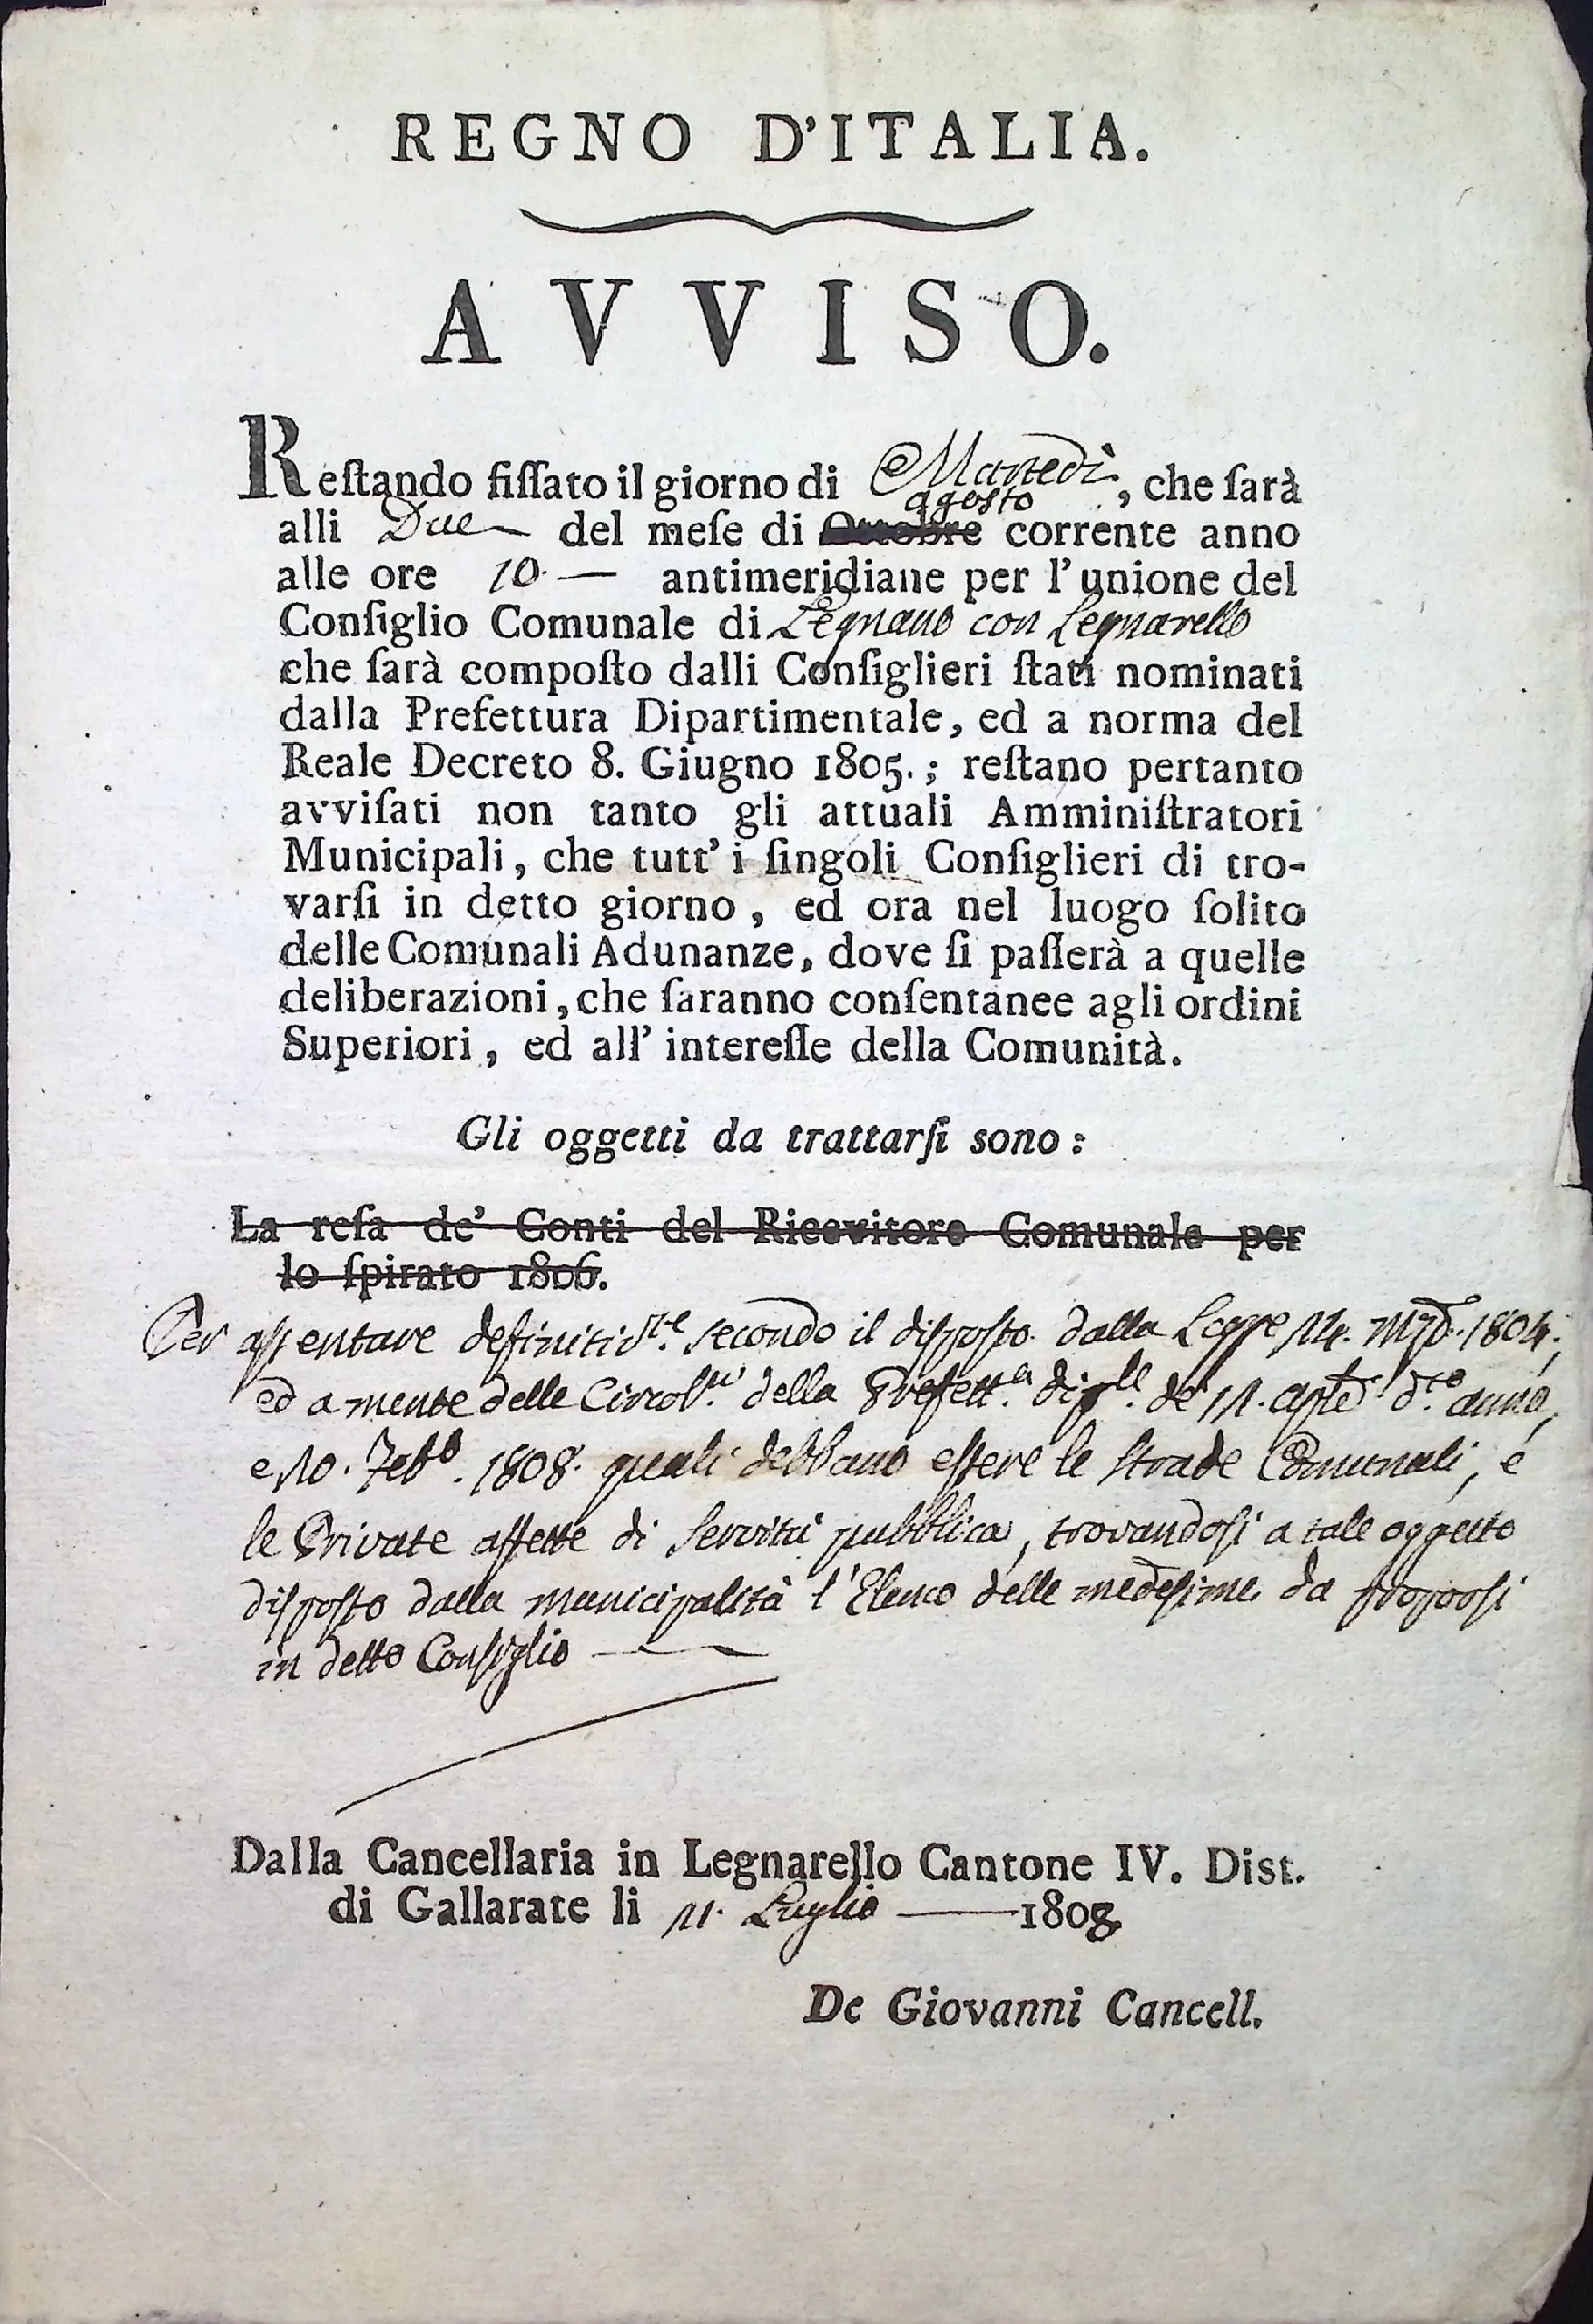 REGNO D'ITALIA.
AVVISO.
Reſtando fiſſato il giorno di Martedì, che ſarà
agosto
alli Due del meſe di Ottobre corrente anno
alle ore 10. — antimeridiane per l' unione del
Conſiglio Comunale di Legnano con Legnarello
che ſarà compoſto dalli Conſiglieri ſtati nominati
dalla Prefettura Dipartimentale, ed a norma del
Reale Decreto 8. Giugno 1805.; reſtano pertanto
avviſati non tanto gli attuali Amminiſtratori
Municipali, che tutt' i ſingoli Conſiglieri di tro-
varſi in detto giorno, ed ora nel luogo ſolito
delle Comunali Adunanze, dove ſi paſſerà a quelle
deliberazioni, che ſaranno conſentanee agli ordini
Superiori, ed all' intereſſe della Comunità.
Gli oggetti da trattarſi sono:
La reſa de' Conti del Ricevitore Comunale per
lo ſpirato 1806.
Per aſsentare secondo il diſpoſto dalla Legge 1804.
ed a mente delle della Prefett.a anno,
e 10. Febb. 1808. quali debbano eſsere le Strade Comunali, e
le Private affette di Servitù pubblica, trovandoſi a tale oggetto
diſpoſto dalla municipalità l'Elenco delle medeſime da proporſi
in detto Conſiglio —
Dalla Cancellaria in Legnarello Cantone IV. Dist.
di Gallarate li 21. Luglio — 1808.
De Giovanni Cancell.